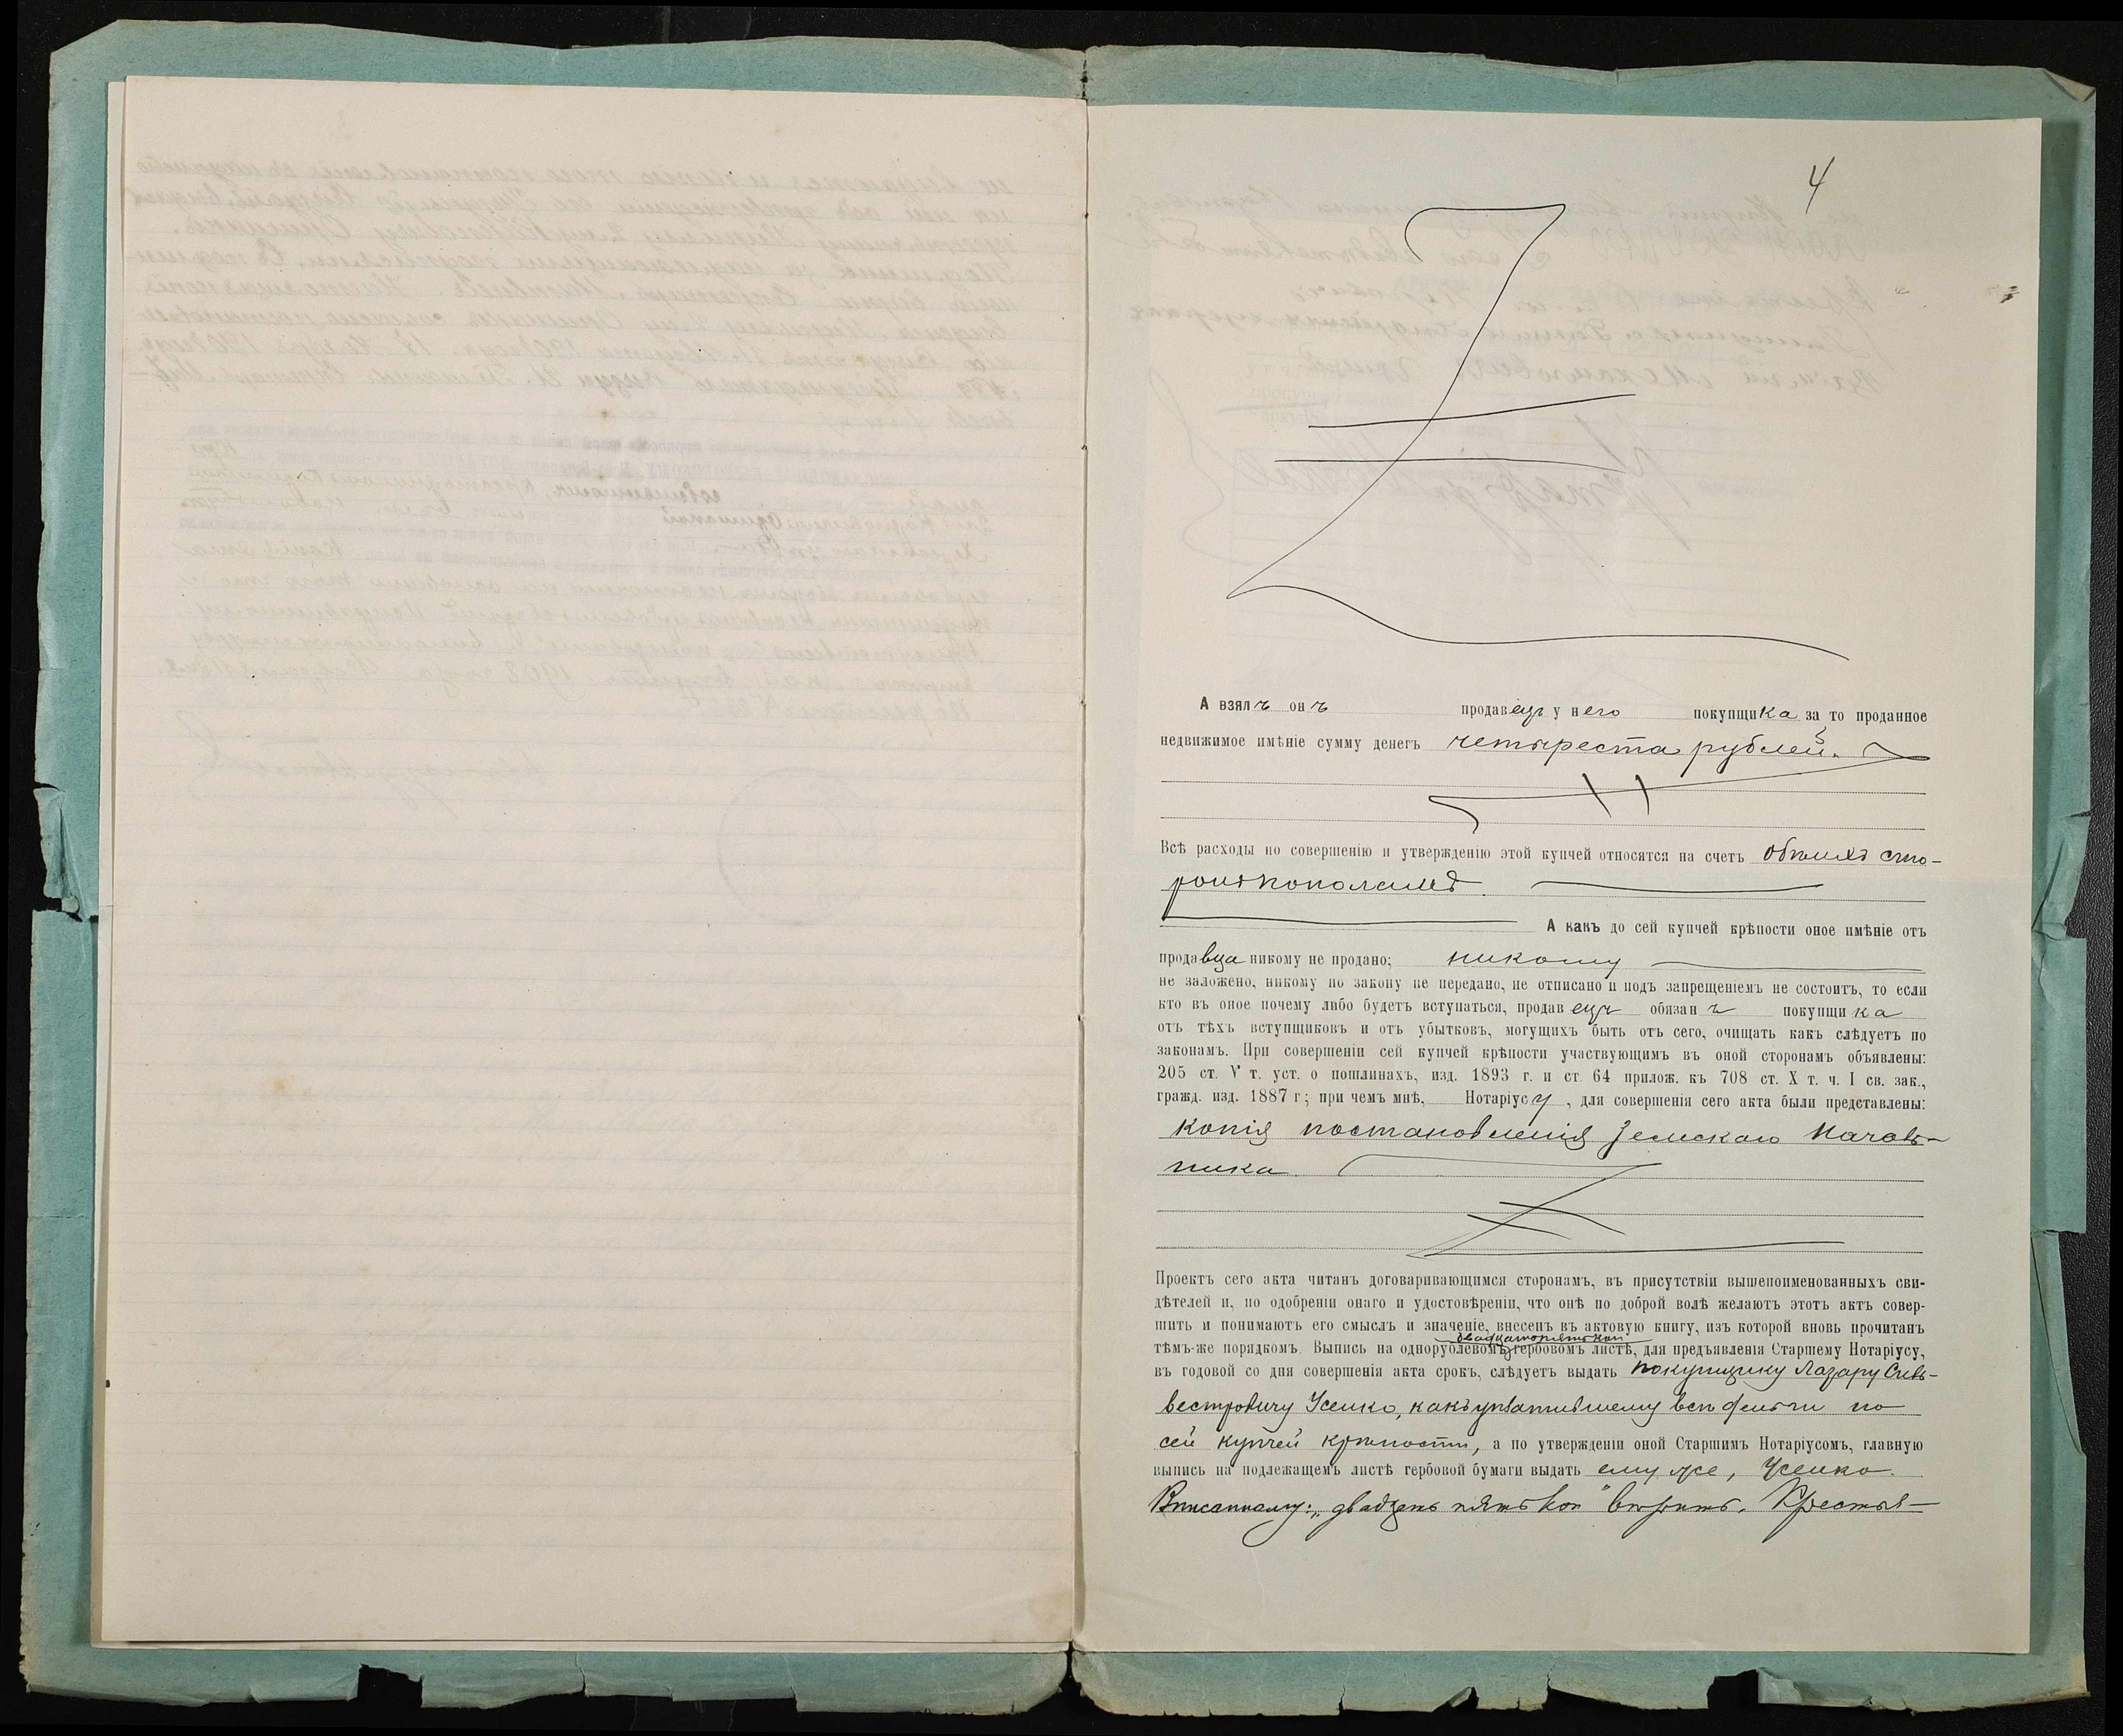 4
А взялъ онъ продавецъ у него покупщика за то проданное
недвижимое имѣніе сумму денегъ четыреста рублей.
Всѣ расходы по совершенію и утвержденію этой купчей относятся на счетъ обѣихъ сто-
ронъ пополамъ.
А какъ до сей купчей крѣпости оное имѣніе отъ
продавца никому не продано; никому
не заложено, никому по закону не передано, не отписано и подъ запрещеніемъ не состоитъ, то если
кто въ оное почему либо будетъ вступаться, продавецъ обязанъ покупщика
отъ тѣхъ вступщиковъ и отъ убытковъ, могущихъ быть отъ сего, очищать какъ слѣдуетъ по
законамъ. При совершеніи сей купчей крѣпости участвующимъ въ оной сторонамъ объявлены:
205 ст. V т. уст. о пошлинахъ, изд. 1893 г. и ст. 64 прилож. къ 708 ст. X т. ч. I св. зак.,
гражд. изд. 1887 г; при чемъ мнѣ, Нотаріусу, для совершенія сего акта были представлены:
копія постановленія Земскаго Началь-
ника.
Проектъ сего акта читанъ договаривающимся сторонамъ, въ присутствіи вышепоименованныхъ сви-
дѣтелей и, по одобреніи онаго и удостовѣреніи, что онѣ по доброй волѣ желаютъ этотъ актъ совер-
шить и понимаютъ его смыслъ и значеніе, внесенъ въ актовую книгу, изъ которой вновь прочитанъ
двадцатопяти коп
тѣмъ-же порядкомъ. Выпись на однорублевомъ гербовомъ листѣ, для предъявленія Старшему Нотаріусу,
въ годовой со дня совершенія акта срокъ, слѣдуетъ выдать покупщику Лазару Силь-
вестровичу Усенко, какъ уплатившему всѣ деньги по
сей купчей крѣпости, а по утвержденіи оной Старшимъ Нотаріусомъ, главную
выпись на подлежащемъ листѣ гербовой бумаги выдать ему же, Усенко.
Вписанному: „двадцать пять коп" вѣрить. Крестья-